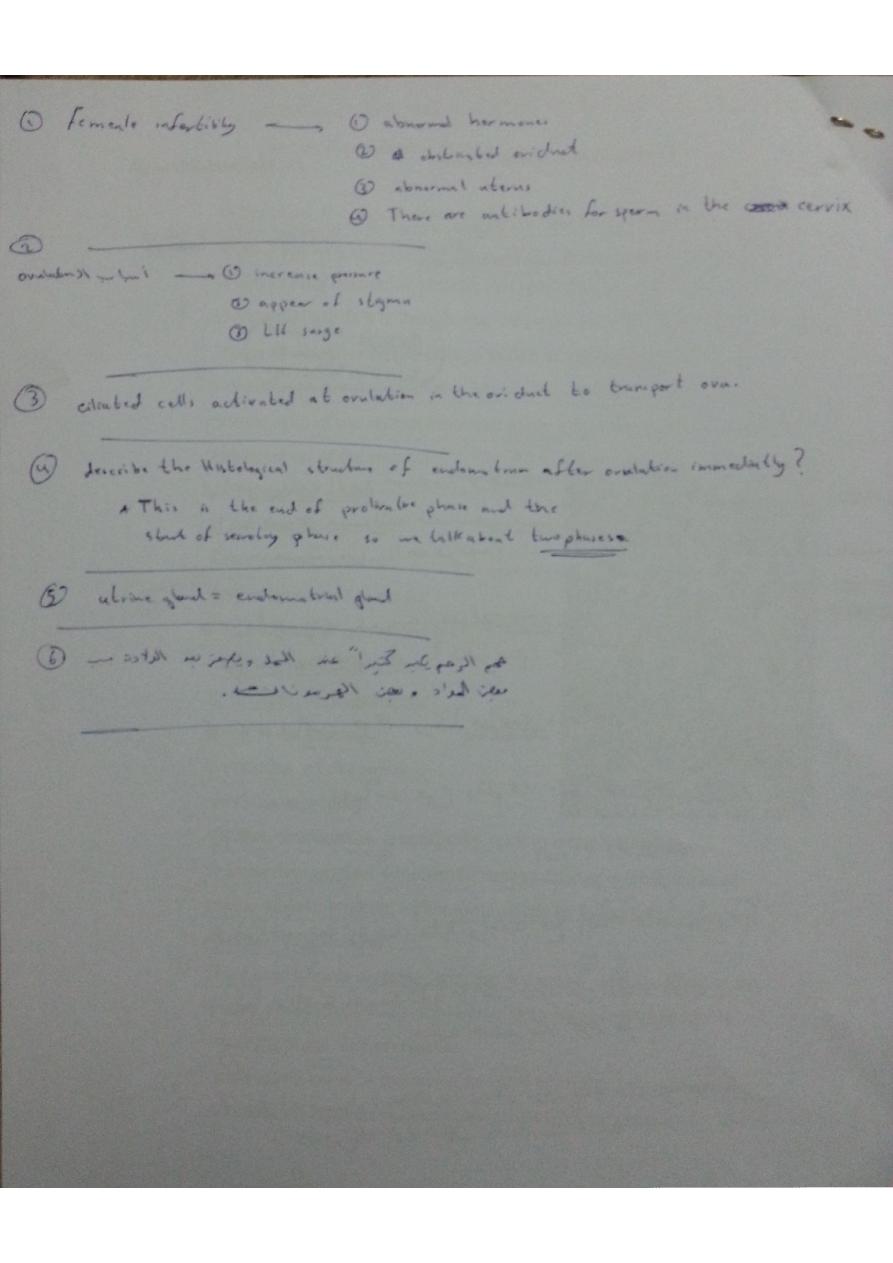 ① Female infertility → ① abnormal hormones
② obstructed oviduct
③ abnormal uterus
④ There are antibodies for sperm in the cervix
②
أسباب الـ ovulation → ① increase pressure
② appear of stigma
③ LH surge
③ ciliated cells activated at ovulation in the oviduct to transport ova.
④ describe the Histological structure of endometrium after ovulation immediatly?
* This is the end of prolivative phase and the
start of secretory phase so we talk about two phases
⑤ utrine gland = endometrial gland
⑥ حجم الرحم يكبر كثيراً عند الحمل ويصغر بعد الولادة
بعض المواد وبعض الهرمونات.